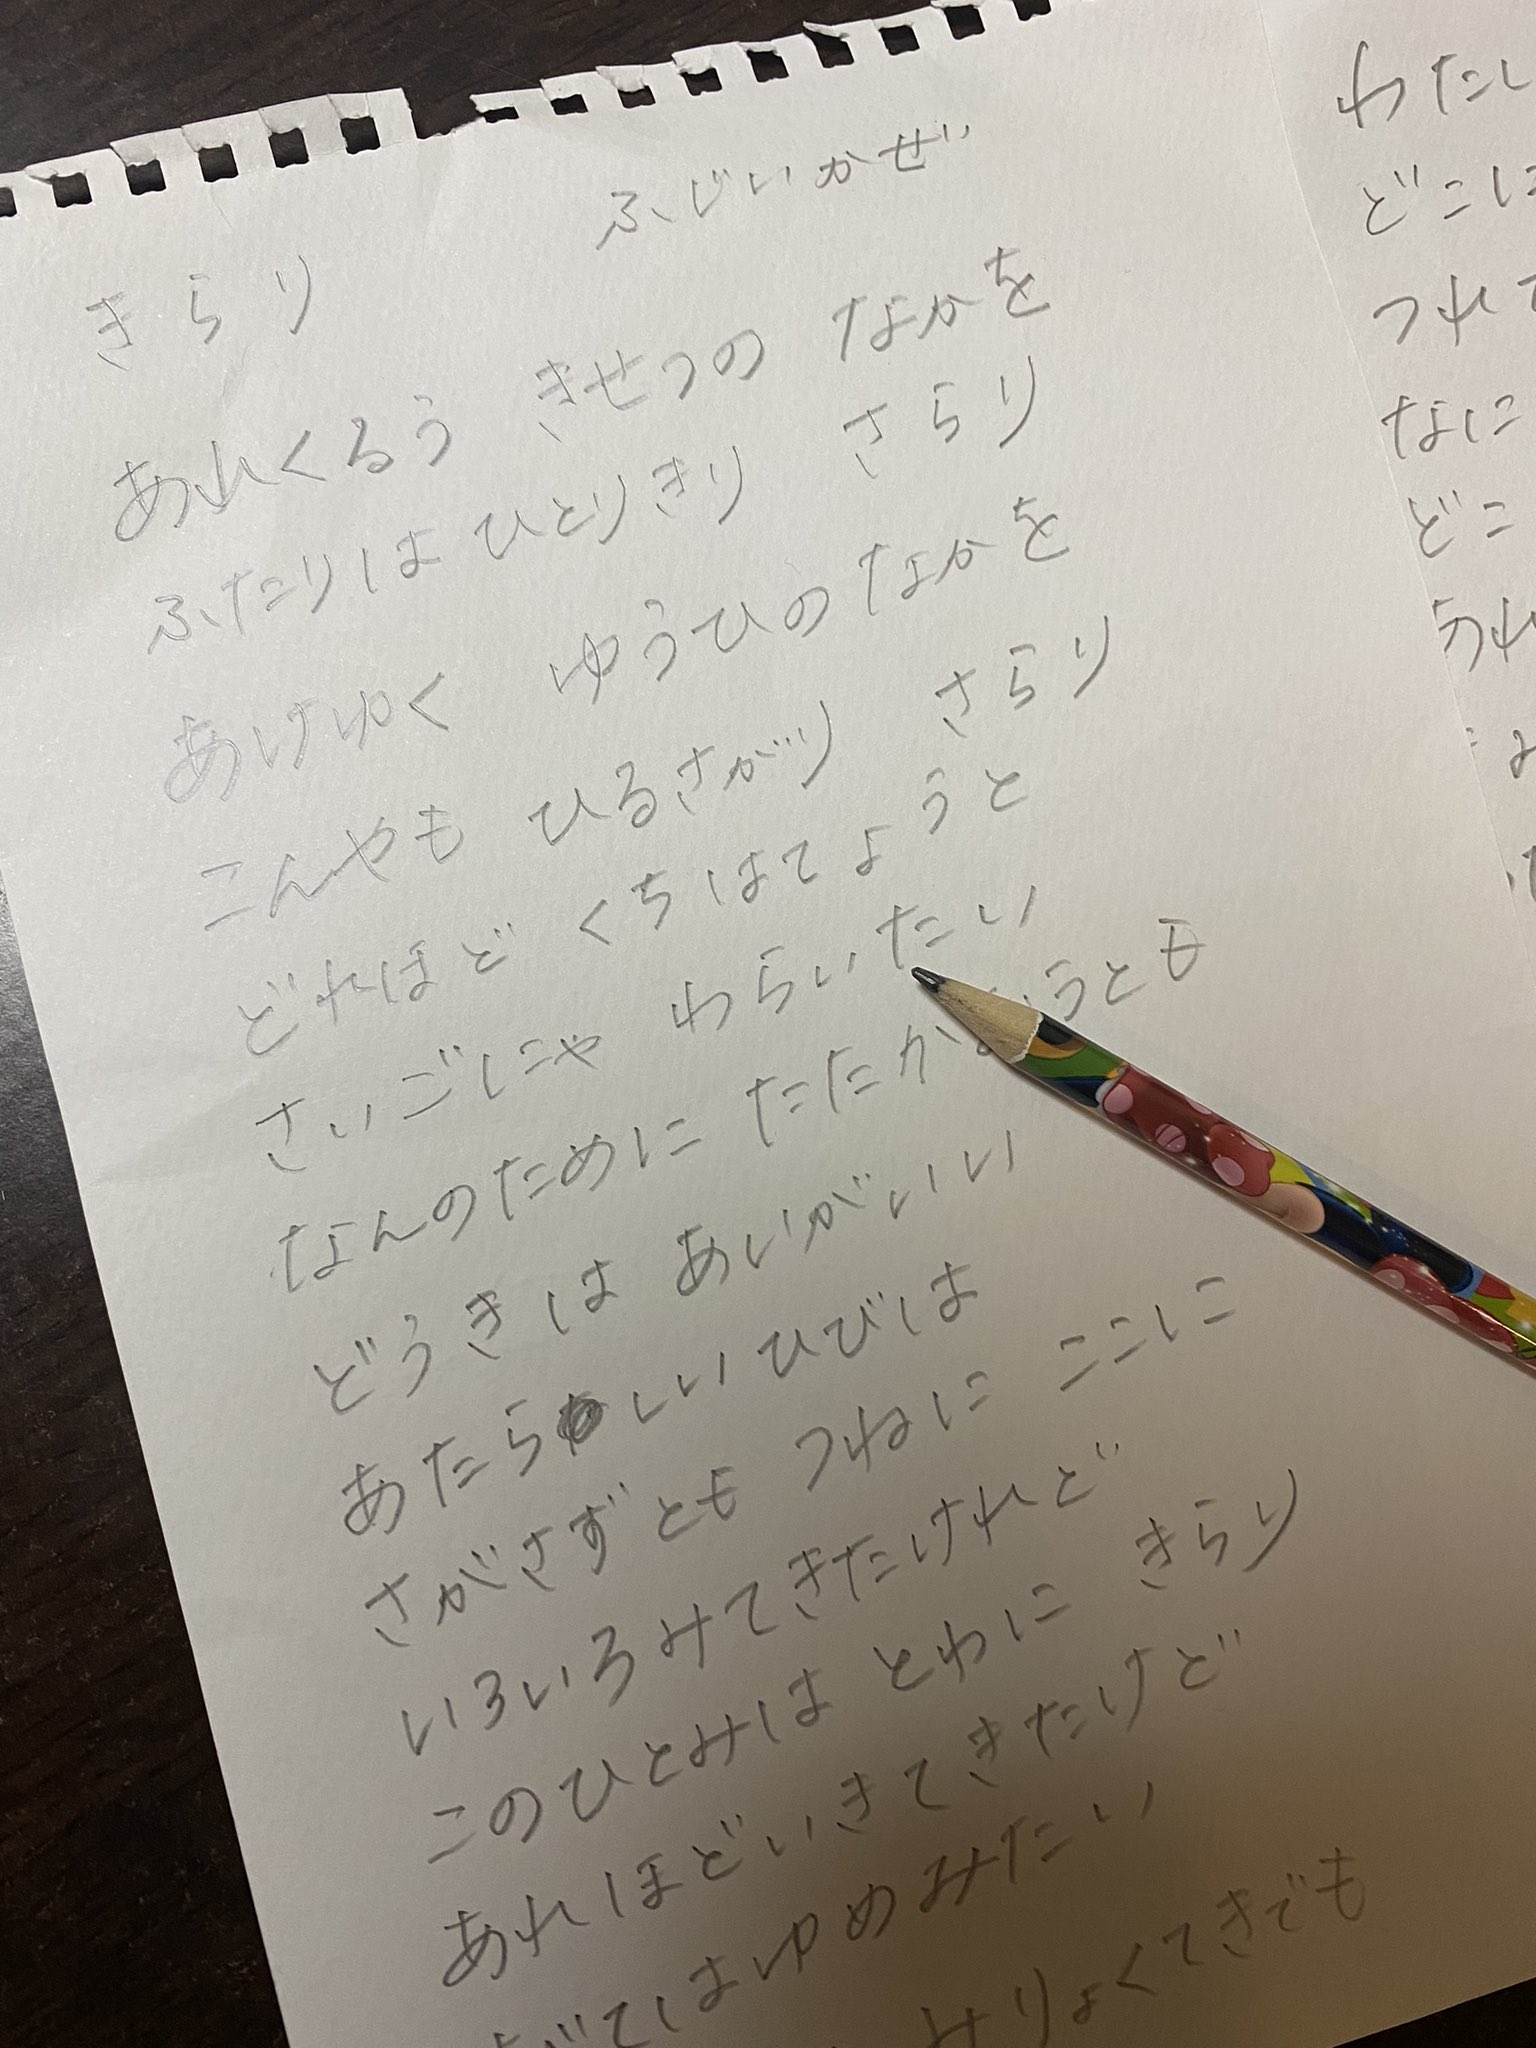 ふじいかぜ
きらり
あれくるう きせつの なかを
ふたりは ひとりきり さらり
あけゆく ゆうひの なかを
こんやも ひるさがり さらり
どれほど くちはてようと
さいごにゃ わらいたい
なんのために たたかおうとも
どうきは あいがいい
あたらしい ひびは
さがさずとも つねに ここに
いろいろみてきたけれど
このひとみは とわに きらり
あれほどいきてきたけど
すべてはゆめみたい
みりょくてきでも
わたし
どこに
つれて
なに
どこ
うれ